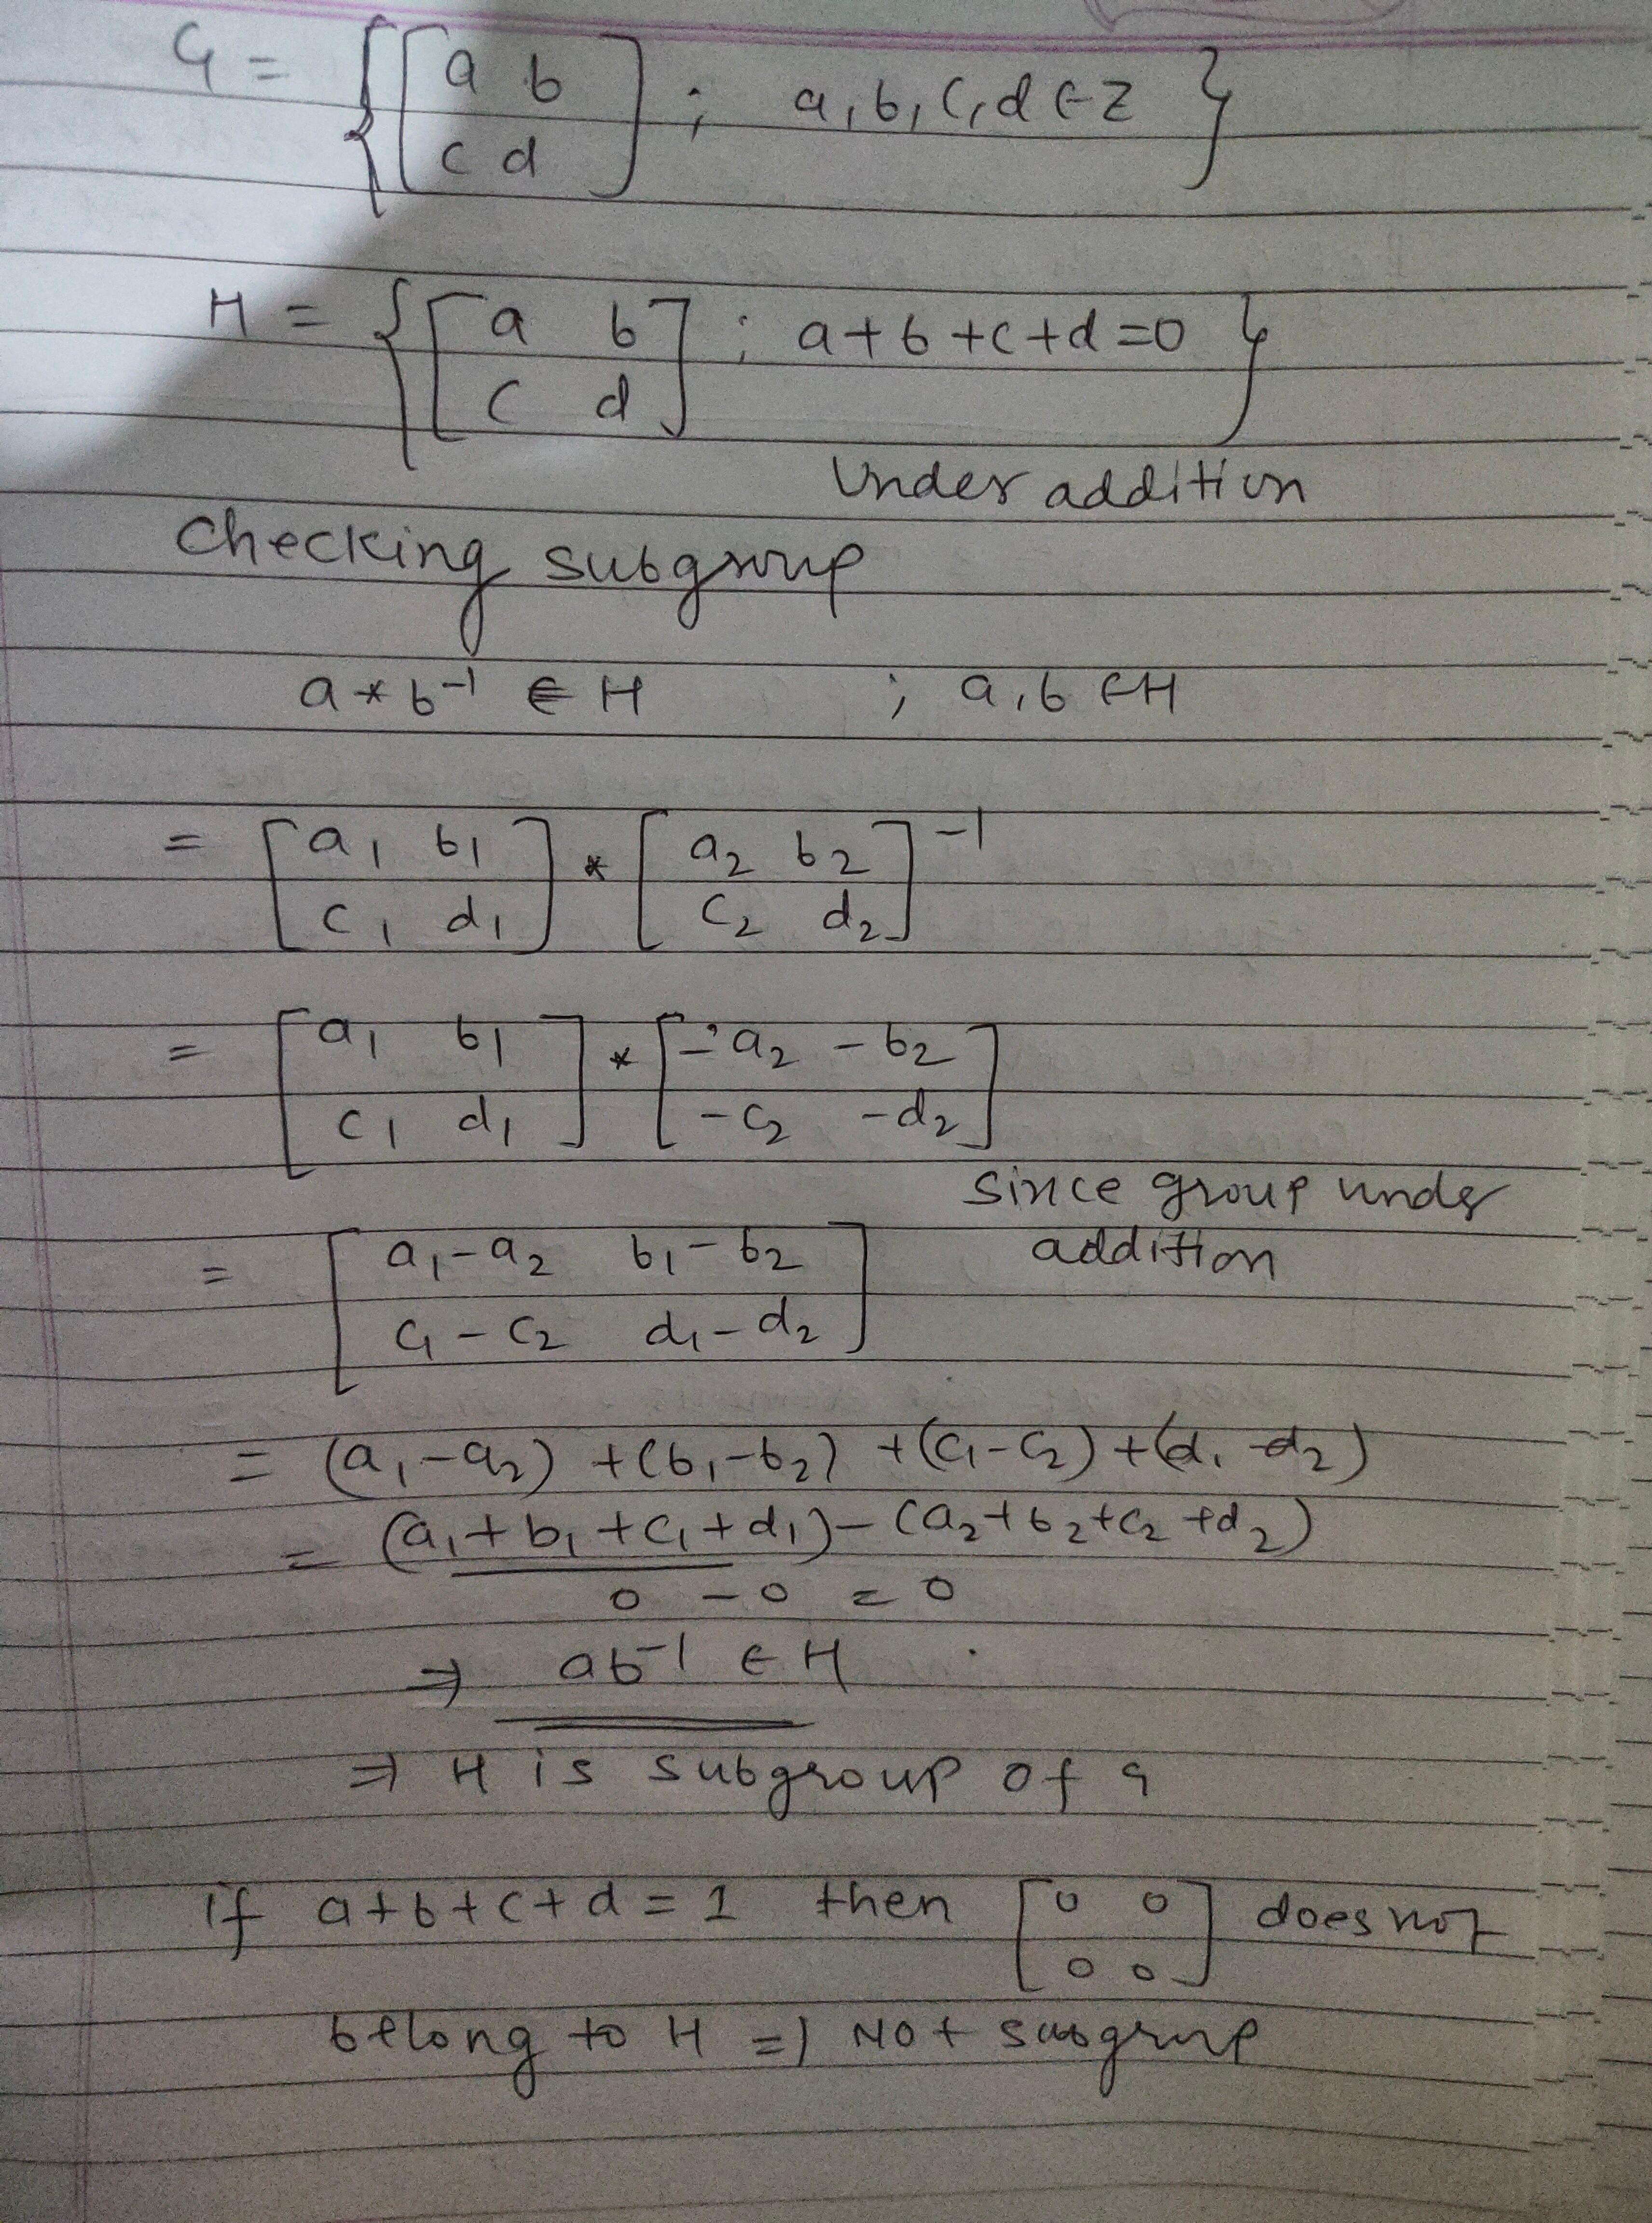 G = { [ a b ; a, b, c, d ∈ Z }
c d ]
H = { [ a b ; a + b + c + d = 0 }
c d ]
Under addition
Checking subgroup
a * b⁻¹ ∈ H ; a, b ∈ H
= [ a₁ b₁ ] * [ a₂ b₂ ]⁻¹
c₁ d₁ c₂ d₂
= [ a₁ b₁ ] * [ -a₂ -b₂ ]
c₁ d₁ -c₂ -d₂
since group under
addition
= [ a₁ - a₂ b₁ - b₂ ]
c₁ - c₂ d₁ - d₂
= (a₁ - a₂) + (b₁ - b₂) + (c₁ - c₂) + (d₁ - d₂)
= (a₁ + b₁ + c₁ + d₁) - (a₂ + b₂ + c₂ + d₂)
0 - 0 = 0
⇒ ab⁻¹ ∈ H
⇒ H is subgroup of G
if a + b + c + d = 1 then [ 0 0 ] does not
0 0
belong to H ⇒ Not subgroup